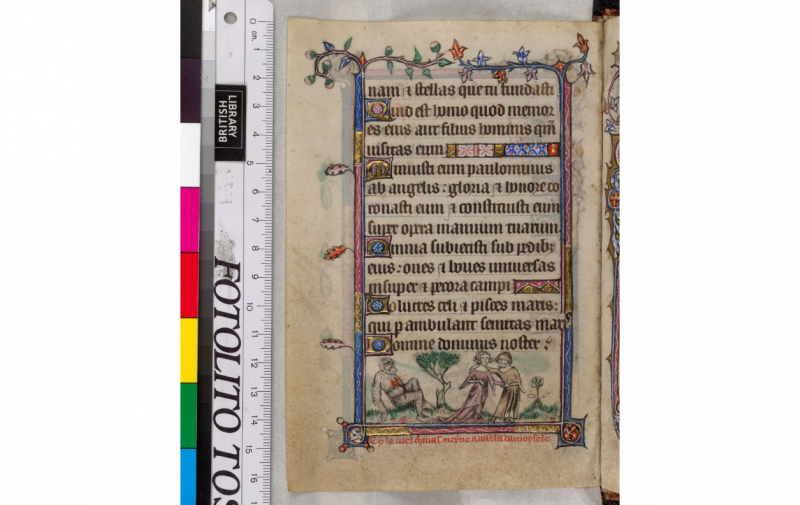 nam ⁊ stellas que tu fundasti
Quid est homo quod memor
es eius aut filius hominis qm̄
uisitas eum
Minuisti eum paulominus
ab angelis: gloria ⁊ honore co
ronasti eum ⁊ constituisti eum
super opera manuum tuarum
Omnia subiecisti sub pedibꝫ
eius: oues ⁊ boues uniuersas
insuper ⁊ pecora campi
Volucres celi ⁊ pisces maris:
qui p ambulant semitas mar
Domine dominus noster:
Cy le uiel chiual' meyne la damoysele
BRITISH
LIBRARY
0 cm. 1 2 3 4 5 6 7 8 9 10 11 12 13 14 15 16
FOTOLITO TOS